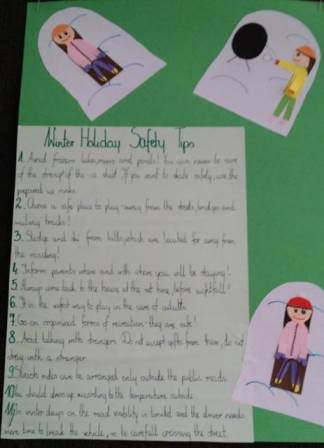 Winter Holiday Safety Tips
1. Avoid frozen lakes, rivers and ponds! You can never be sure
of the strength of the ice sheet. If you want to skate safely, use the
prepared ice rinks.
2. Choose a safe place to play away from the streets, bridges and
railway tracks!
3. Sledge and ski from hills, which are located far away from
the roadway!
4. Inform parents where and with whom you will be staying!
5. Always come back to the house at the set time, before nightfall!
6. It is the safest way to play in the care of adults.
7. Go on organised forms of recreation - they are safe!
8. Avoid talking with strangers. Do not accept gifts from them, do not
stray with a stranger.
9. Sleigh rides can be arranged only outside the public roads.
10. You should dress up according to the temperature outside.
11. In winter days on the road visibility is limited and the driver needs
more time to break the vehicle, so be careful crossing the street.